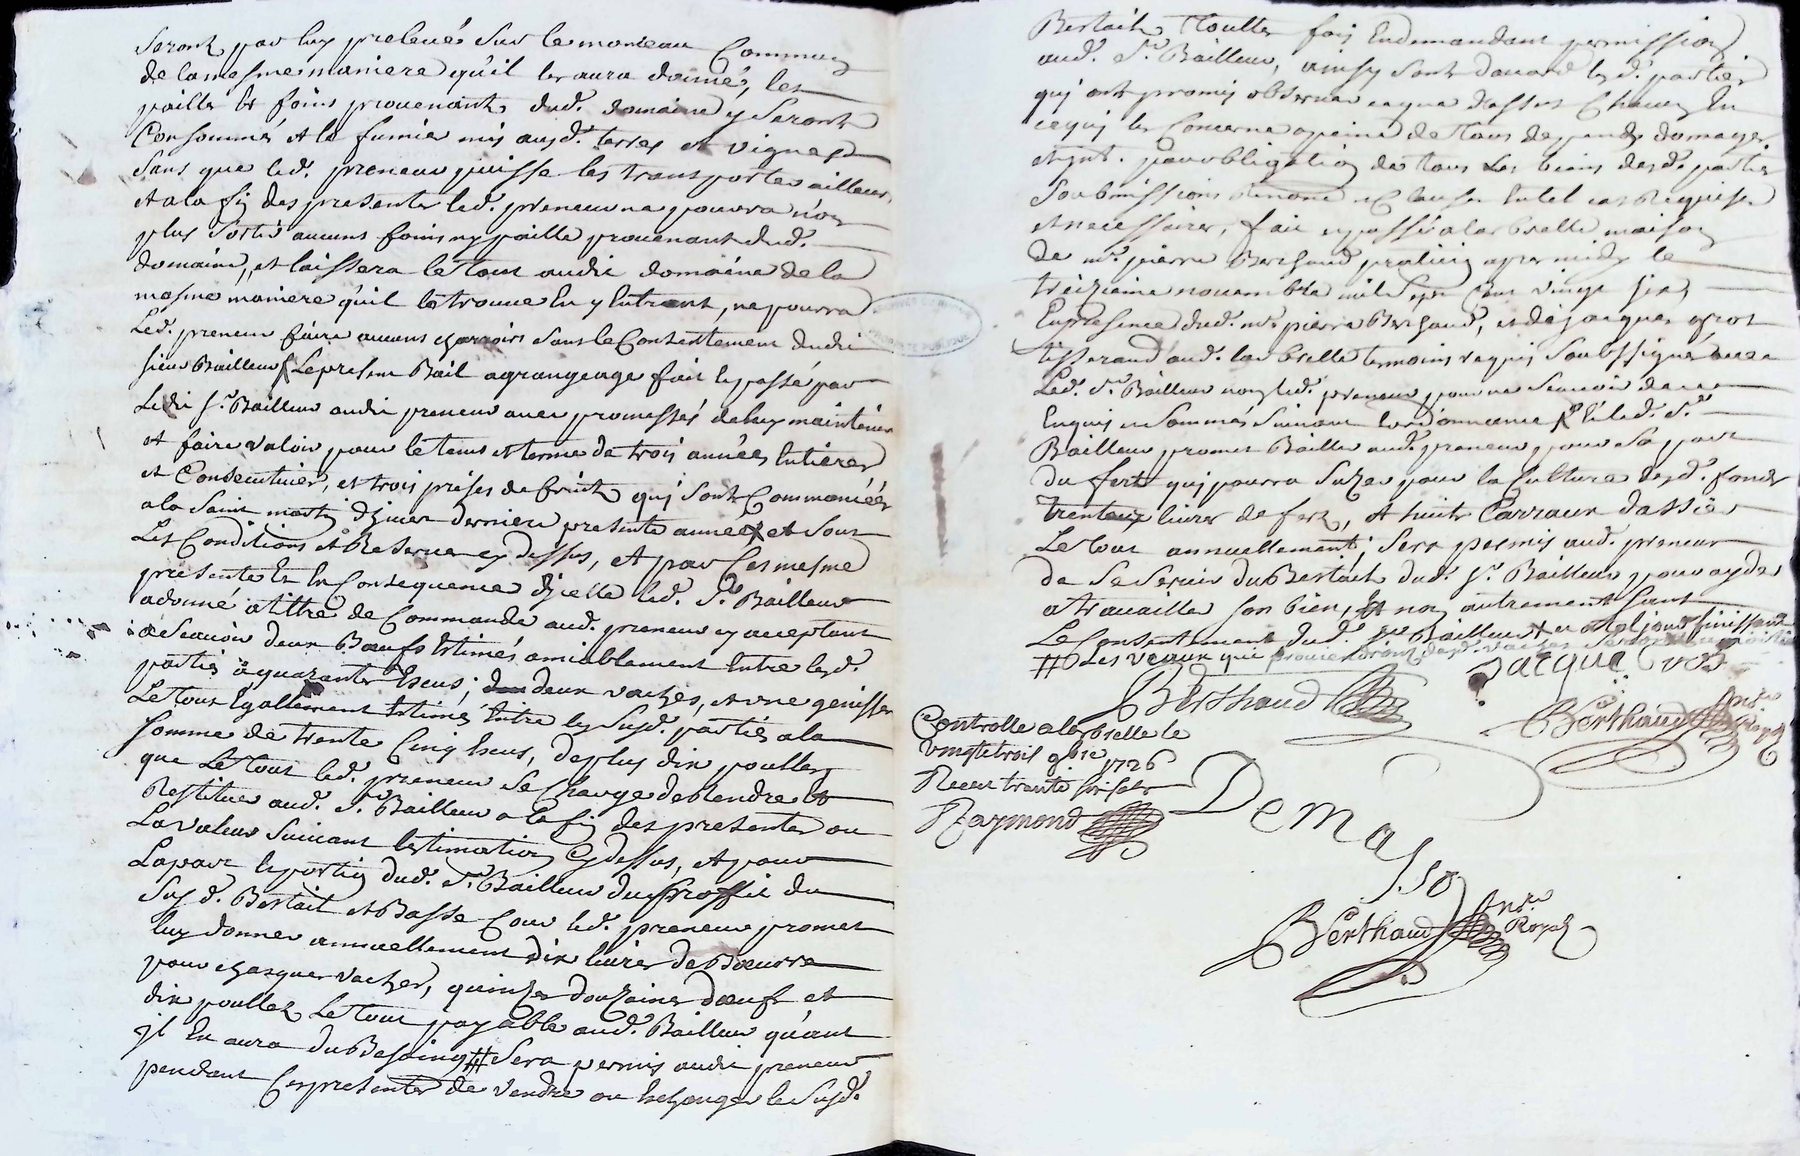 Seront par luy prelevés sur le monceau Commung
de la mesme maniere qu'il les aura donné, les
paille et foins provenants dud. domaine y Seront
Consommés et le fumié mis auxd. terres et vignes
Sans que led. preneur puisse les transporter ailleurs,
et a la fin des presentes led. preneur ne pourra non
plus sortir aucuns foins ny paille provenant dud.
domaine, et laissera le tout audit domaine de la
mesme maniere qu'il le trouve En y Entrant, ne pourra
Led. preneur faire aucuns charrois sans le Consentement dudit
sieur Bailleur Le present Bail a grangeage fait et passé par
Ledit Sr. Bailleur audit preneur avec promesses de luy maintenir
et faire valoir pour le tems et terme de trois années Entieres
et Consecutives, et trois prises de fruits quy sont Commancées
a la Saint martin d'hiver derniere presente année et sous
Les Conditions et Reserves cy dessus, et par Ces mesme
presentes Et En Consequence d'icelle led. Sr. Bailleur
a donné a titre de Commande aud. preneur cy acceptant
a Scavoir deux Bœufs Estimés amiablement Entre lesd.
parties a quarante Escus; deux vaches, et une genisse
Le tout Egallement Estimés Entre lesd. parties a la
somme de trente Cinq Escus, de plus dix poulles
que Le tout led. preneur se Charge de Rendre et
Restituer aud. Sr. Bailleur a la fin des presentes ou
La valeur Suivant l'estimation cy dessus, et pour
La part et portion dud. Sr. Bailleur du proffit du
Susd. Bestait et Basse Cour led. preneur promet
luy donner annuellement dix livres de Bœurre
pour chasques vaches, quinze douzaines d'œufs et
dix poulles Le tout payable aud. Bailleur quant
il En aura du Besoing # Sera permis audit preneur
pendant Ces presentes de vendre ou Echanger le Susd.
Bestait, Toutte fois En demandant permission
aud. Sr. Bailleur, ainsy sont d'accord lesd. parties
quy ont promis observer ce que dessus Chacun En
ce quy les Concerne a peine de tous despends domages
et int. par obligation de tous Les biens desd. parties
Soubmissions Renonc. et Clauses En tel cas Requises
et necessaires, fait et passé a la brelle maison
de me. pierre Berthaud praticien apres midy le
treizieme novembre mil Sept Cent vingt six
En presence dud. me. pierre Berthaud, et de jacques gros
tisserand aud. la brelle temoins requis Soubssignés avec
Led. Sr. Bailleur non led. preneur pour ne Scavoir de ce
Enquis et Sommés Suivant l'ordonnance et led. Sr.
Bailleur promet Bailler aud. preneur pour Sa part
du fert quy pourra Suzer pour la Culture desd. fonds
trente livres de fert, et huit Carraux d'assier
Le tout annuellement; sera permis aud. preneur
de se Servir du Bestait dud. Sr. Bailleur pour ayder
a travailler son bien, et non autrement sans
Le Consentement dud. Sr. Bailleur
# Les veaux qui proviendront desd. vaches
Jacque Gros
Berthaud
Berthaud
Controllé a la brelle le
vingt trois 9bre 1726
Receu trente six sols
Raymond
Demasso
Berthaud
Royal